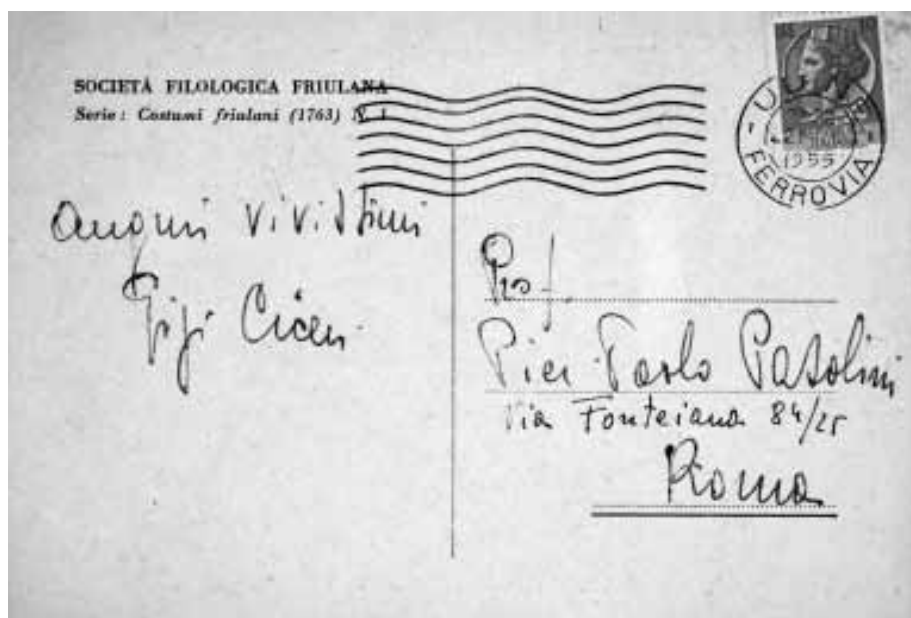 SOCIETÀ FILOLOGICA FRIULANA
Serie: Costumi friulani (1763) N. 1
1955
FERROVIA
auguri vivissimi
Gigi Ciceri
Prof.
Pier Paolo Pasolini
Via Fonteiana 84/25
Roma